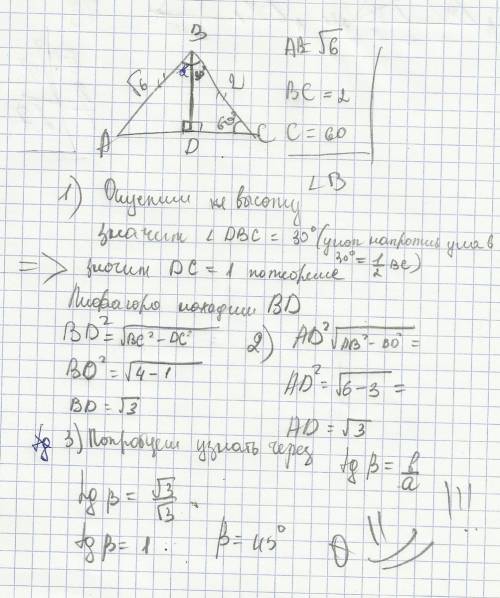 B
√6
2
A
D
60°
C
AB = √6
BC = 2
C = 60
∠B
1) Опустим высоту
значит ∠DBC = 30° (угол напротив угла в
30° = 1/2 BC)
=> значит DC = 1 по теореме
Пифагора находим BD
BD² = √BC² - DC²
BD² = √4 - 1
BD = √3
2) AD² √AB² - BD² =
AD² = √6 - 3 =
AD = √3
tg 3) Попробуем узнать через
tg β = b/a
tg β = √3/√3
tg β = 1
β = 45°